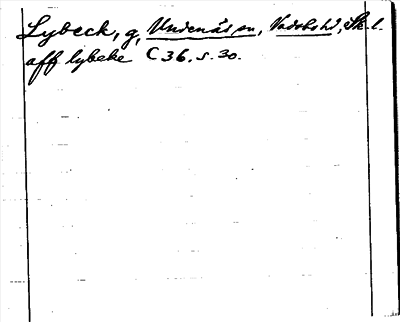 Lybeck, g, Undenäs sn, Vadsbo hd, Sk. l.
aff lybeke C 36. s. 30.